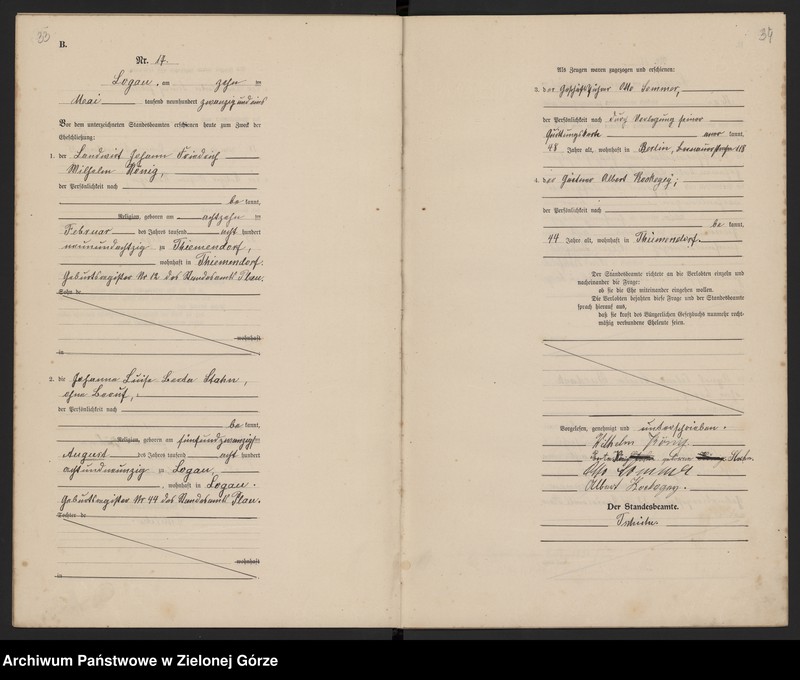 33
B.
Nr. 17.
Logau, am zehn ten
Mai tausend neunhundert zwanzig und eins
Vor dem unterzeichneten Standesbeamten erschienen heute zum Zweck der
Eheschließung:
1. der Landwirt Johann Friedrich
Wilhelm König,
der Persönlichkeit nach
be kannt,
Religion, geboren am achtzehn ten
Februar des Jahres tausend acht hundert
neunundachtzig zu Thiemendorf,
wohnhaft in Thiemendorf.
Geburtsregister Nr 12 des Standesamts Plau.
Sohn de
wohnhaft
in
2. die Johanna Luise Gerda Stahn,
ohne Beruf,
der Persönlichkeit nach
be kannt,
Religion, geboren am fünfundzwanzigsten
August des Jahres tausend acht hundert
achtundneunzig zu Logau,
wohnhaft in Logau.
Geburtsregister Nr 44 des Standesamts Plau.
Tochter de
wohnhaft
in
34
Als Zeugen waren zugezogen und erschienen:
3. der Geschäftsführer Otto Sommer,
der Persönlichkeit nach durch Vorlegung seiner
Quittungskarte aner kannt,
48 Jahre alt, wohnhaft in Berlin, 118
4. der Gärtner Albert
der Persönlichkeit nach
be kannt,
44 Jahre alt, wohnhaft in Thiemendorf.
Der Standesbeamte richtete an die Verlobten einzeln und
nacheinander die Frage:
ob sie die Ehe miteinander eingehen wollen.
Die Verlobten bejahten diese Frage und der Standesbeamte
sprach hierauf aus,
daß sie kraft des Bürgerlichen Gesetzbuchs nunmehr recht-
mäßig verbundene Eheleute seien.
Vorgelesen, genehmigt und unterschrieben.
Wilhelm König.
Stahn.
Otto Sommer
Albert
Der Standesbeamte.
Archiwum Państwowe w Zielonej Górze